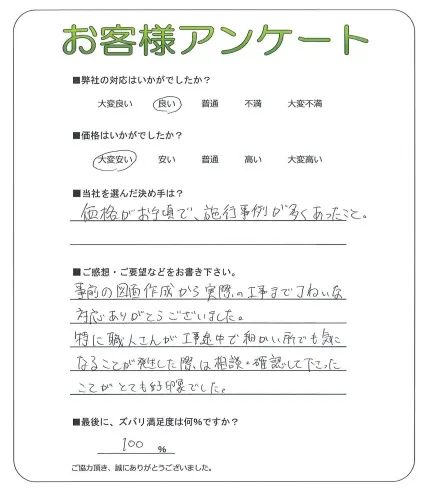 お客様アンケート
■弊社の対応はいかがでしたか？
大変良い 良い 普通 不満 大変不満
■価格はいかがでしたか？
大変安い 安い 普通 高い 大変高い
■当社を選んだ決め手は？
価格がお手頃で、施行事例が多くあったこと。
■ご感想・ご要望などをお書き下さい。
事前の図面作成から実際の工事までていねいな
対応ありがとうございました。
特に職人さんが工事途中で細かい所でも気に
なることが発生した際は相談・確認して下さった
ことがとても好印象でした。
■最後に、ズバリ満足度は何%ですか？
100 %
ご協力頂き、誠にありがとうございました。